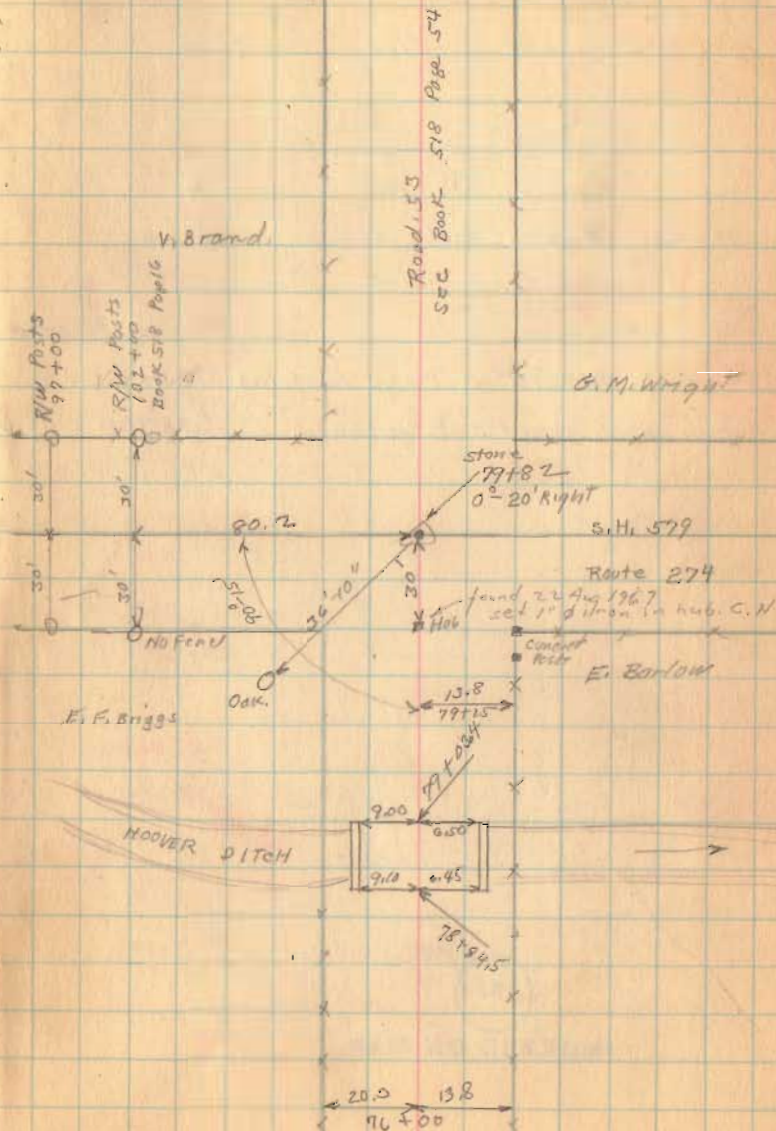 Road 53
SEE BOOK 518 Page 54
V. Brand
R/W Posts
97+00
R/W Posts
102+00
Book 518 Page 16
G. M. Wright
stone
79+82
0°-20' Right
30'
30'
80.2
S.H. 579
Route 274
30'
30'
36'-10"
30'
found 22 Aug 1967
set 1" ø iron in hub. C.N.
Hub
No Fence
Concret
Posts
E. Barlow
Oak.
13.8
79+15
E. F. Briggs
79+03.4
9.00
6.50
HOOVER DITCH
9.10
6.45
78+84.5
20.0
13.8
76+00